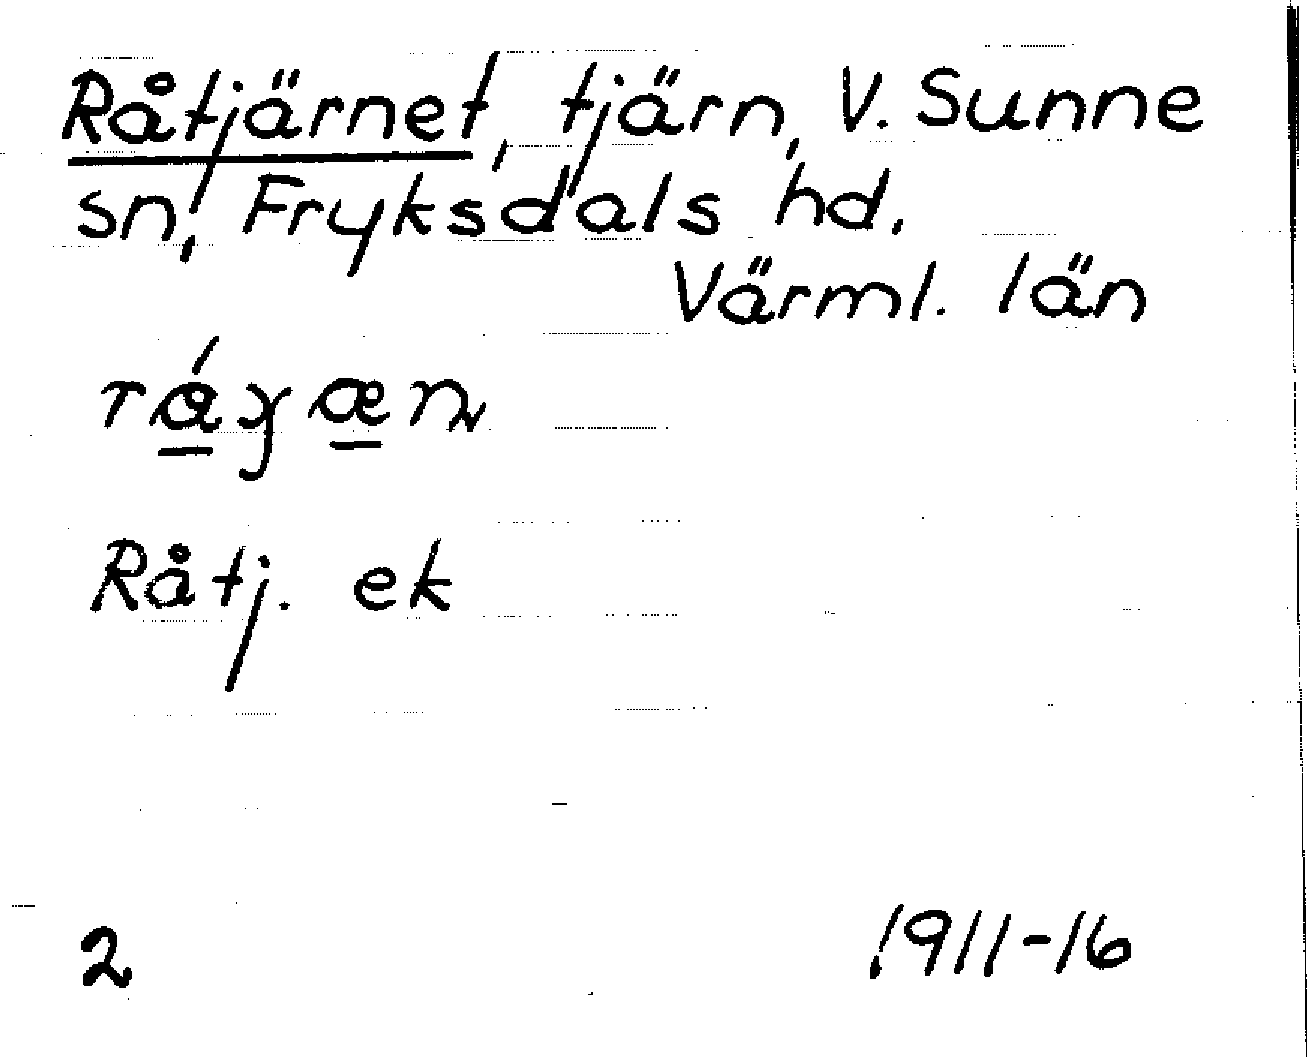 Råtjärnet, tjärn, V. Sunne
sn, Fryksdals hd.
Värml. län
Råtj. ek
2
1911-16